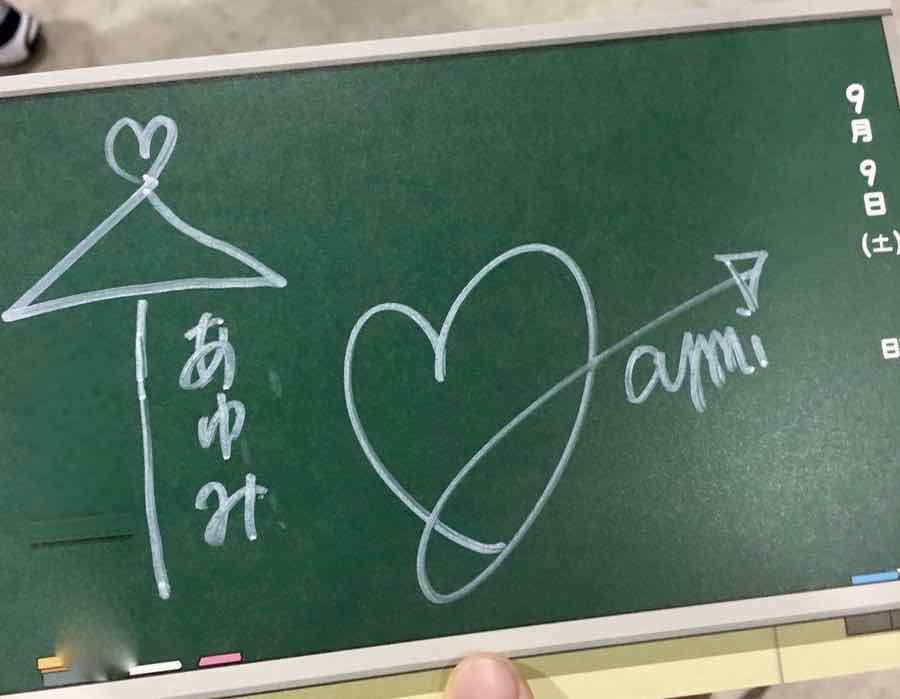 9月9日(土)
日
あゆみ
aymi